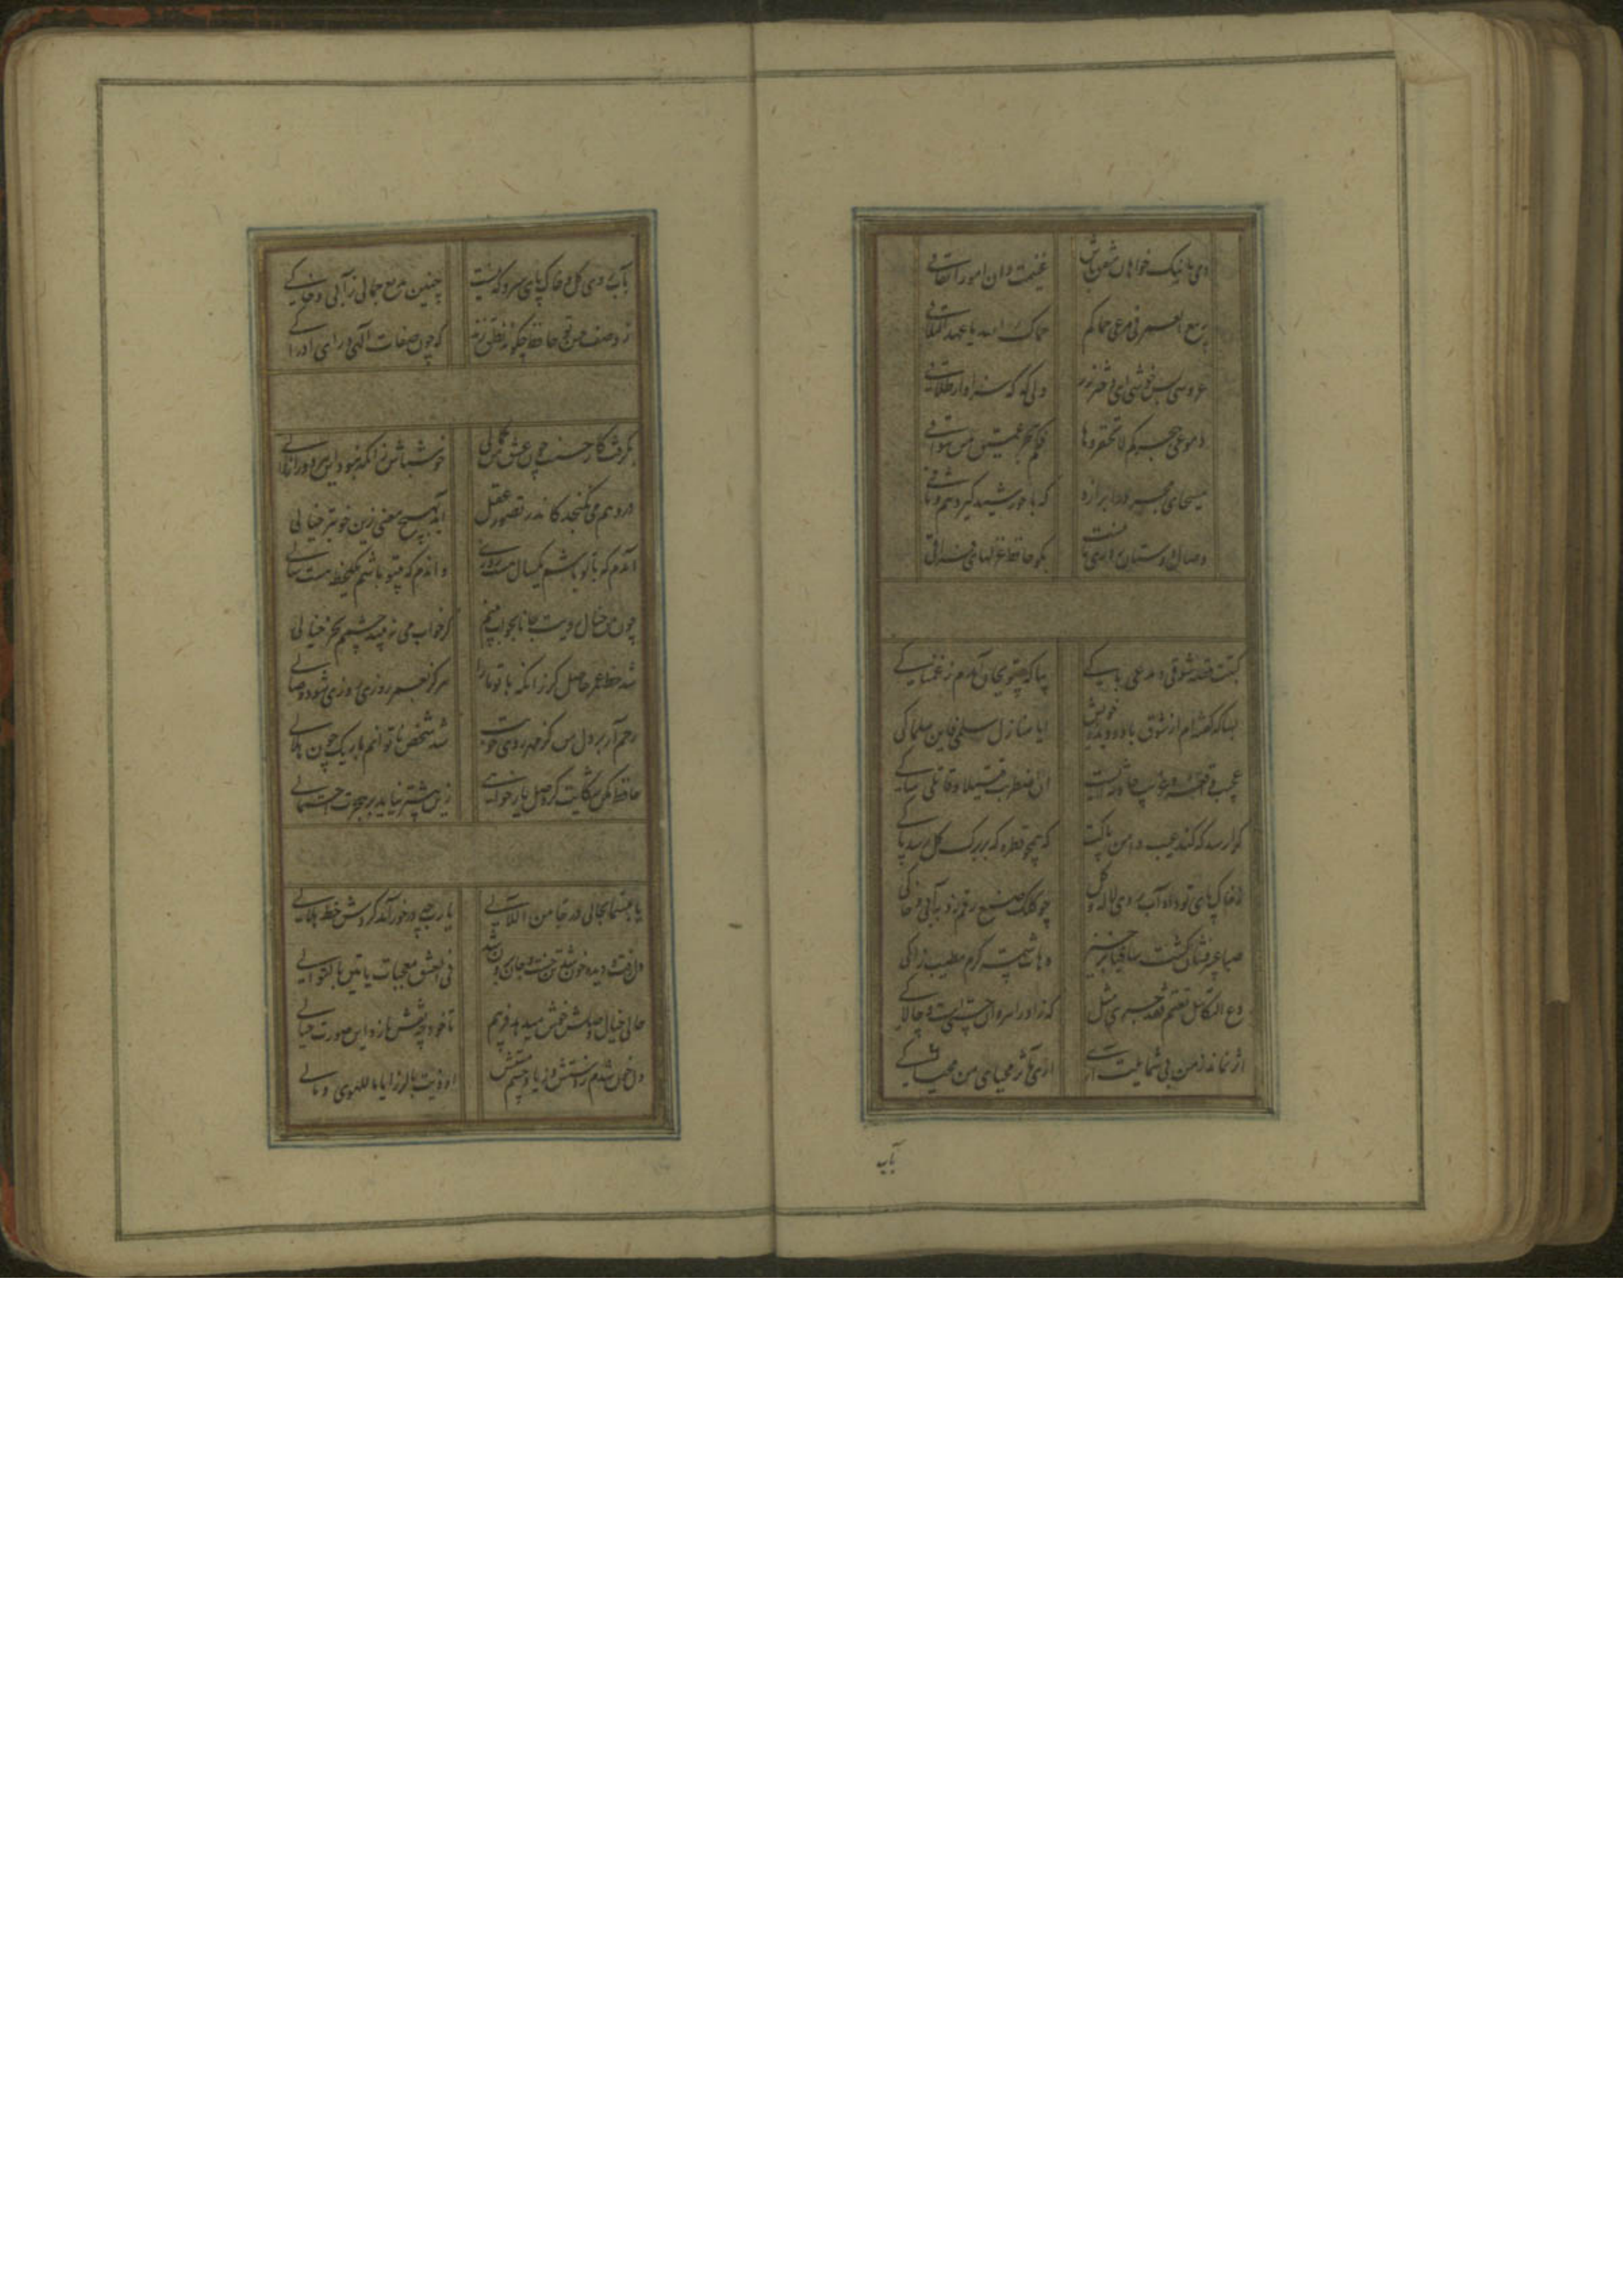 دمی با نیک خواهان متفق باش غنیمت دان امور اتفاقی
ربیع العمر فی مرعی حماکم حماک الله یا عهد التلاقی
عروسی بس خوشی ای دختر رز ولی که که سزاوار طلاقی
دموعی بعدکم لا تحقروها فکم بحر عمیق من سواقی
مسیحای مجرد را برازد که با خورشید گیرد هم وثاقی
وصال دوستان روزی ما نیست بگو حافظ غزلهای فراقی
کتبت قصة شوقی و مدمعی باکی بیا که بی تو بجان آمدم ز غمناکی
بسا که گفته‌ام از شوق با دو دیده خویش ایا منازل سلمی فاین سلماکی
عجیب واقعه و غریب حادثه ایست انا اضطربت قتیلا و قاتلی شاکی
کرا رسد که کند عیب دامن پاکت که همچو قطره که بر برگ گل رسد پاکی
ز خاک پای تو داد آب روی لاله و گل چو کلک صنع رقم زد بر آبی و خاکی
صبا عبیرفشان گشت ساقیا برخیز و هات شمسة کرم مطیب زاکی
دع التکاسل تغنم فقد جری مثل که زاد راهروان چستی است و چالاکی
اثر نماند ز من بی شمایلت آری اری مآثر محیای من محیاکی
بآب
بآب روی گل و خاک پای سرو که نیست چنین بدیع جمالی ز آبی و خاکی
ز وصف حسن تو حافظ چگونه نطق زند که چون صفات الهی ورای ادراکی
بگرفت کار حسنت چون عشق من کمالی خوش باش زانکه نبود این هر دو را زوالی
در وهم می نگنجد کاندر تصور عقل آید بهیچ معنی زین خوبتر خیالی
آندم که با تو باشم یکسال هست روزی و اندم که بی تو باشم یک لحظه هست سالی
چون من خیال رویت جانا بخواب بینم کز خواب می نبیند چشمم بجز خیالی
شد حظ عمر حاصل گر زانکه با تو ما را هرگز بعمر روزی روزی شود وصالی
رحم آر بر دل من کز مهر روی خوبت شد شخص ناتوانم باریک چون هلالی
حافظ مکن شکایت گر وصل یار خواهی زین بیشتر بباید بر هجرت احتمالی
یا مبسما یحاکی درجا من اللآلی یا رب چه در خور آمد گردش خط هلالی
دل رفت و دیده خون شد تن خست و جان برون شد فی العشق معجبات یاتین بالتوالی
حالی خیال وصلش خوش میدهد فریبم تا خود چه نقش بازد این صورت خیالی